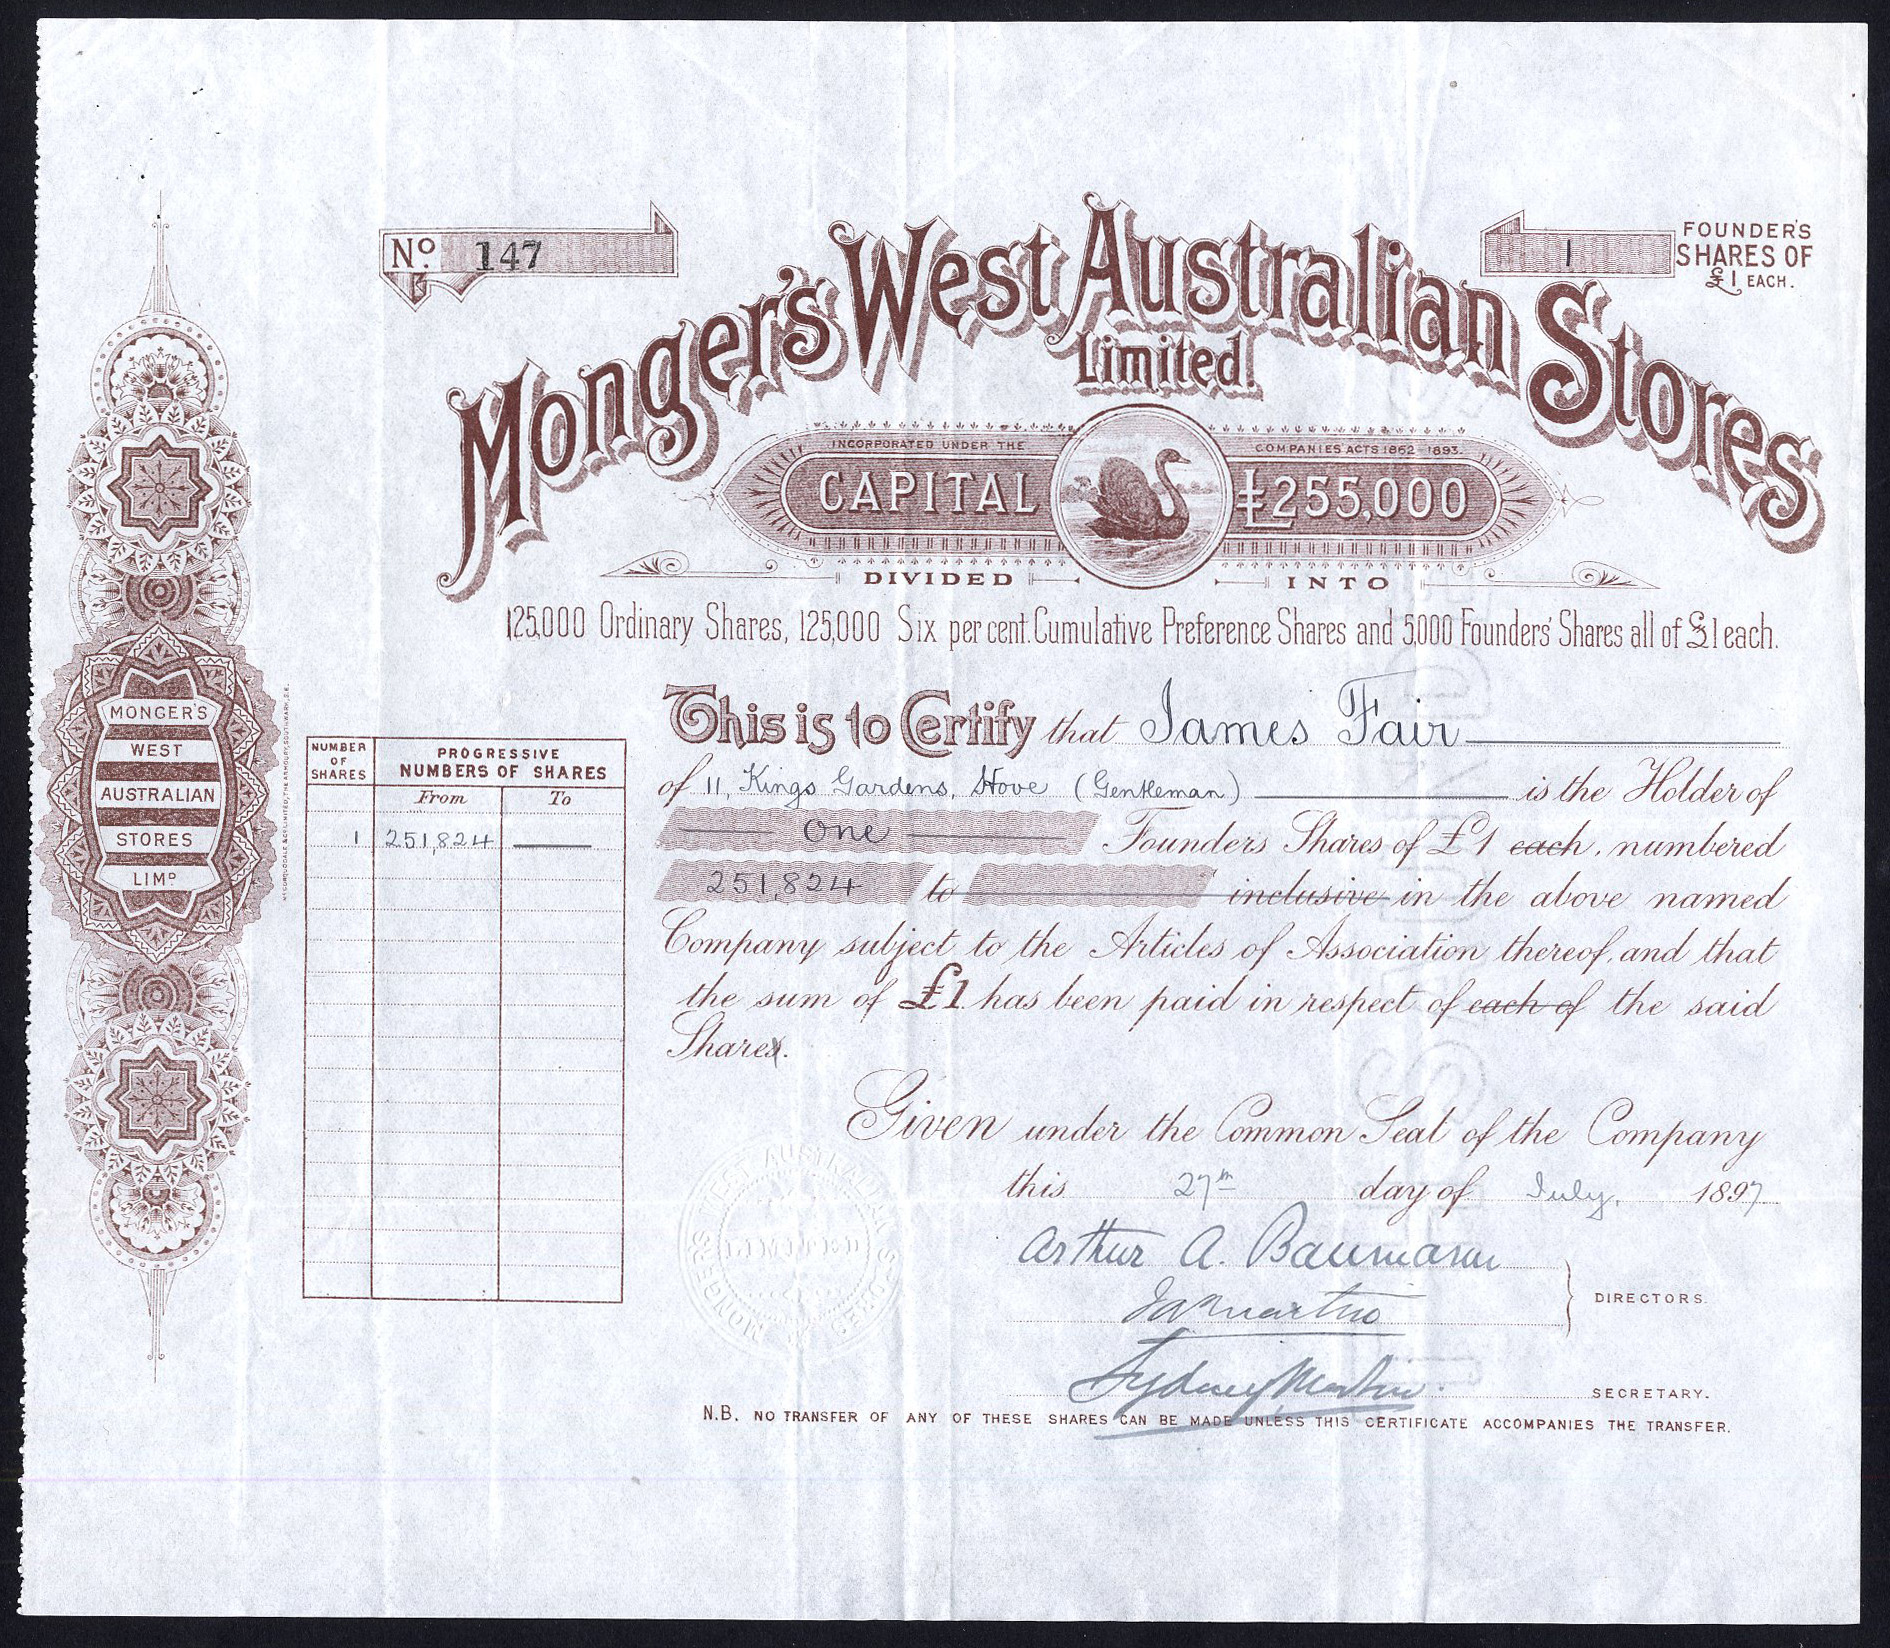 No. 147
1
FOUNDER'S
SHARES OF
£1 EACH.
Monger's West Australian Stores
Limited.
INCORPORATED UNDER THE COMPANIES ACTS 1862-1893.
CAPITAL £255,000
DIVIDED INTO
125,000 Ordinary Shares, 125,000 Six per cent. Cumulative Preference Shares and 5,000 Founders' Shares all of £1 each.
MONGER'S
WEST
AUSTRALIAN
STORES
LIMD
NUMBER OF SHARES
PROGRESSIVE
NUMBERS OF SHARES
From To
1 251,824
This is to Certify that James Fair
of 11, Kings Gardens, Hove (Gentleman) is the Holder of
One Founder's Shares of £1 each, numbered
251,824 to inclusive in the above named
Company subject to the Articles of Association thereof, and that
the sum of £1 has been paid in respect of each of the said
Shares.
Given under the Common Seal of the Company
this 27th day of July, 1897
Arthur A. Baumann
DIRECTORS.
Sydney Martin.
SECRETARY.
N.B. NO TRANSFER OF ANY OF THESE SHARES CAN BE MADE UNLESS THIS CERTIFICATE ACCOMPANIES THE TRANSFER.
MONGER'S WEST AUSTRALIAN STORES
LIMITED